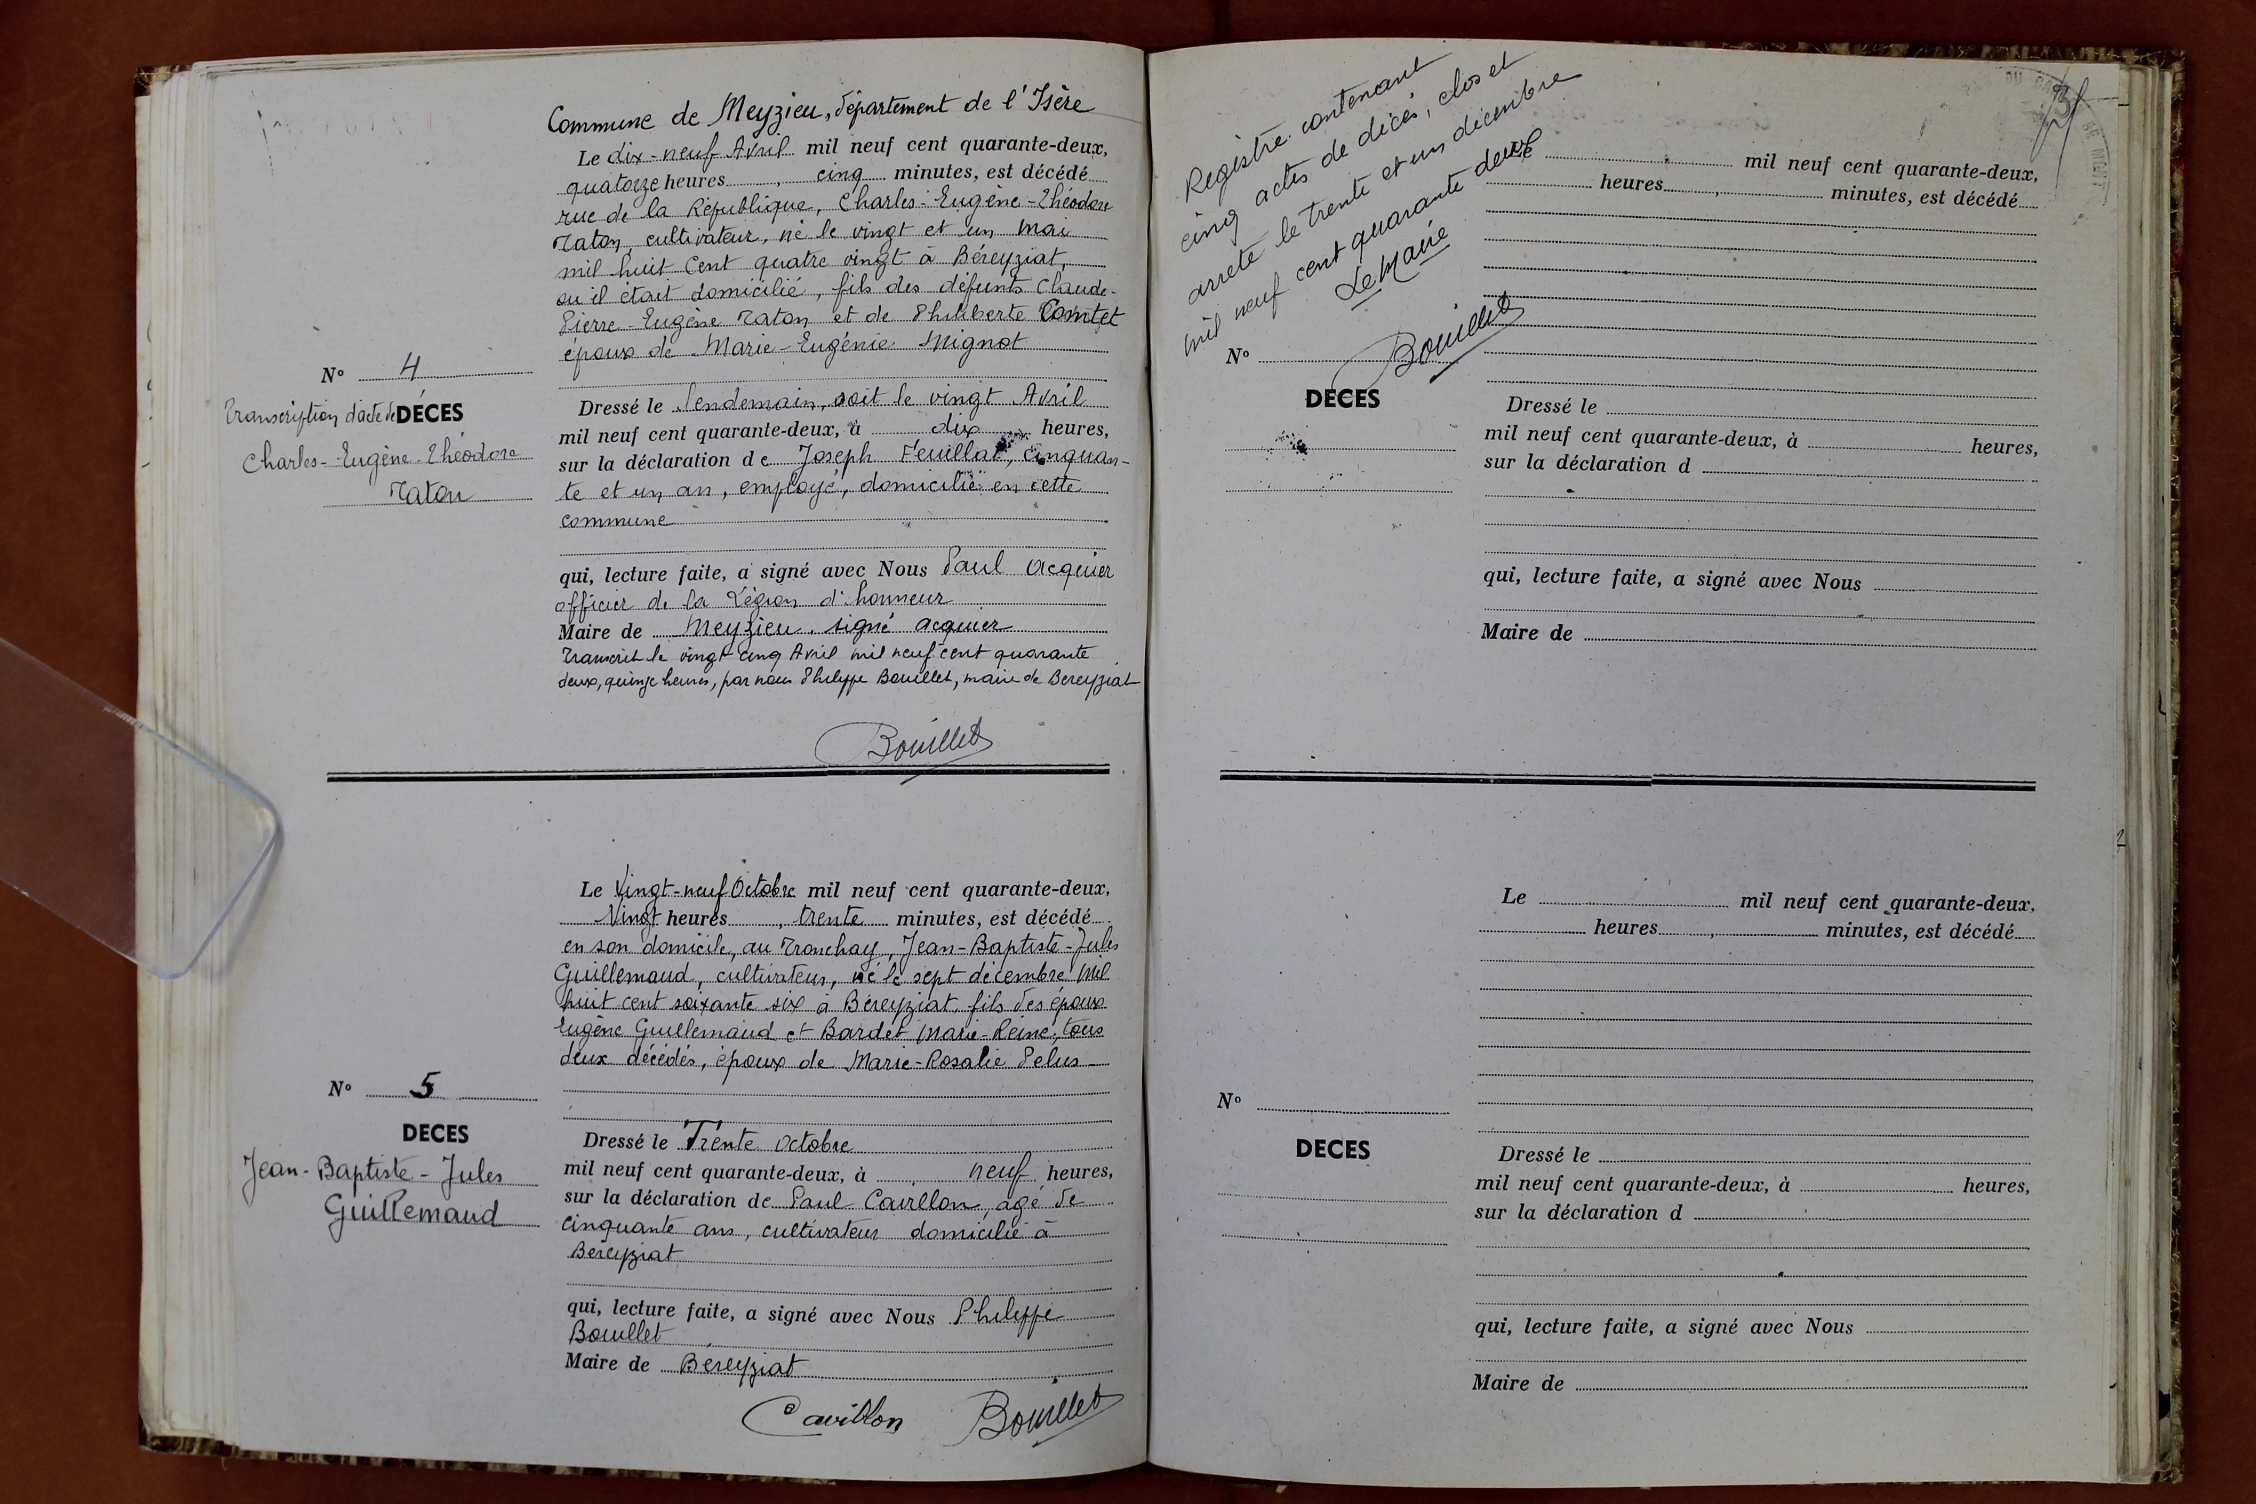 Commune de Meyzieu, département de l'Isère
Le dix-neuf Avril mil neuf cent quarante-deux,
quatorze heures, cinq minutes, est décédé
rue de la République, Charles-Eugène-Théodore
Raton, cultivateur, né le vingt et un Mai
mil huit Cent quatre vingt à Béreyziat,
ou il était domicilié, fils des défunts Claude-
Pierre-Eugène Raton et de Philiberte Comtet
époux de Marie-Eugénie Mignot
N° 4
Transcription d'acte de DÉCES
Charles-Eugène-Théodore
Raton
Dressé le lendemain, soit le vingt Avril
mil neuf cent quarante-deux, à dix heures,
sur la déclaration de Joseph Feuillat, cinquan-
te et un an, employé, domicilié en cette
commune
qui, lecture faite, a signé avec Nous Paul Acquier
officier de la Légion d'honneur
Maire de Meyzieu, signé Acquier
Transcrit le vingt cinq Avril mil neuf cent quarante
deux, quinze heures, par nous Philippe Bouillet, maire de Bereyziat
Bouillet
Le Vingt-neuf Octobre mil neuf cent quarante-deux,
Vingt heures, trente minutes, est décédé
en son domicile, au Tronchay, Jean-Baptiste-Jules
Guillemaud, cultivateur, né le sept décembre mil
huit cent soixante six à Béreyziat, fils des époux
Eugène Guillemaud et Bardet Marie-Reine, tous
deux décédés, époux de Marie-Rosalie Pelus
N° 5
DECES
Jean-Baptiste-Jules
Guillemaud
Dressé le Trente octobre
mil neuf cent quarante-deux, à neuf heures,
sur la déclaration de Paul Cavillon, agé de
cinquante ans, cultivateur domicilié à
Béreyziat
qui, lecture faite, a signé avec Nous Philippe
Bouillet
Maire de Béreyziat
Cavillon Bouillet
Registre contenant
cinq actes de décès, clos et
arrêté le trente et un décembre
mil neuf cent quarante deux
Le Maire
Bouillet
mil neuf cent quarante-deux,
heures, minutes, est décédé
N°
DECES
Dressé le
mil neuf cent quarante-deux, à heures,
sur la déclaration d
qui, lecture faite, a signé avec Nous
Maire de
Le mil neuf cent quarante-deux,
heures, minutes, est décédé
N°
DECES
Dressé le
mil neuf cent quarante-deux, à heures,
sur la déclaration d
qui, lecture faite, a signé avec Nous
Maire de